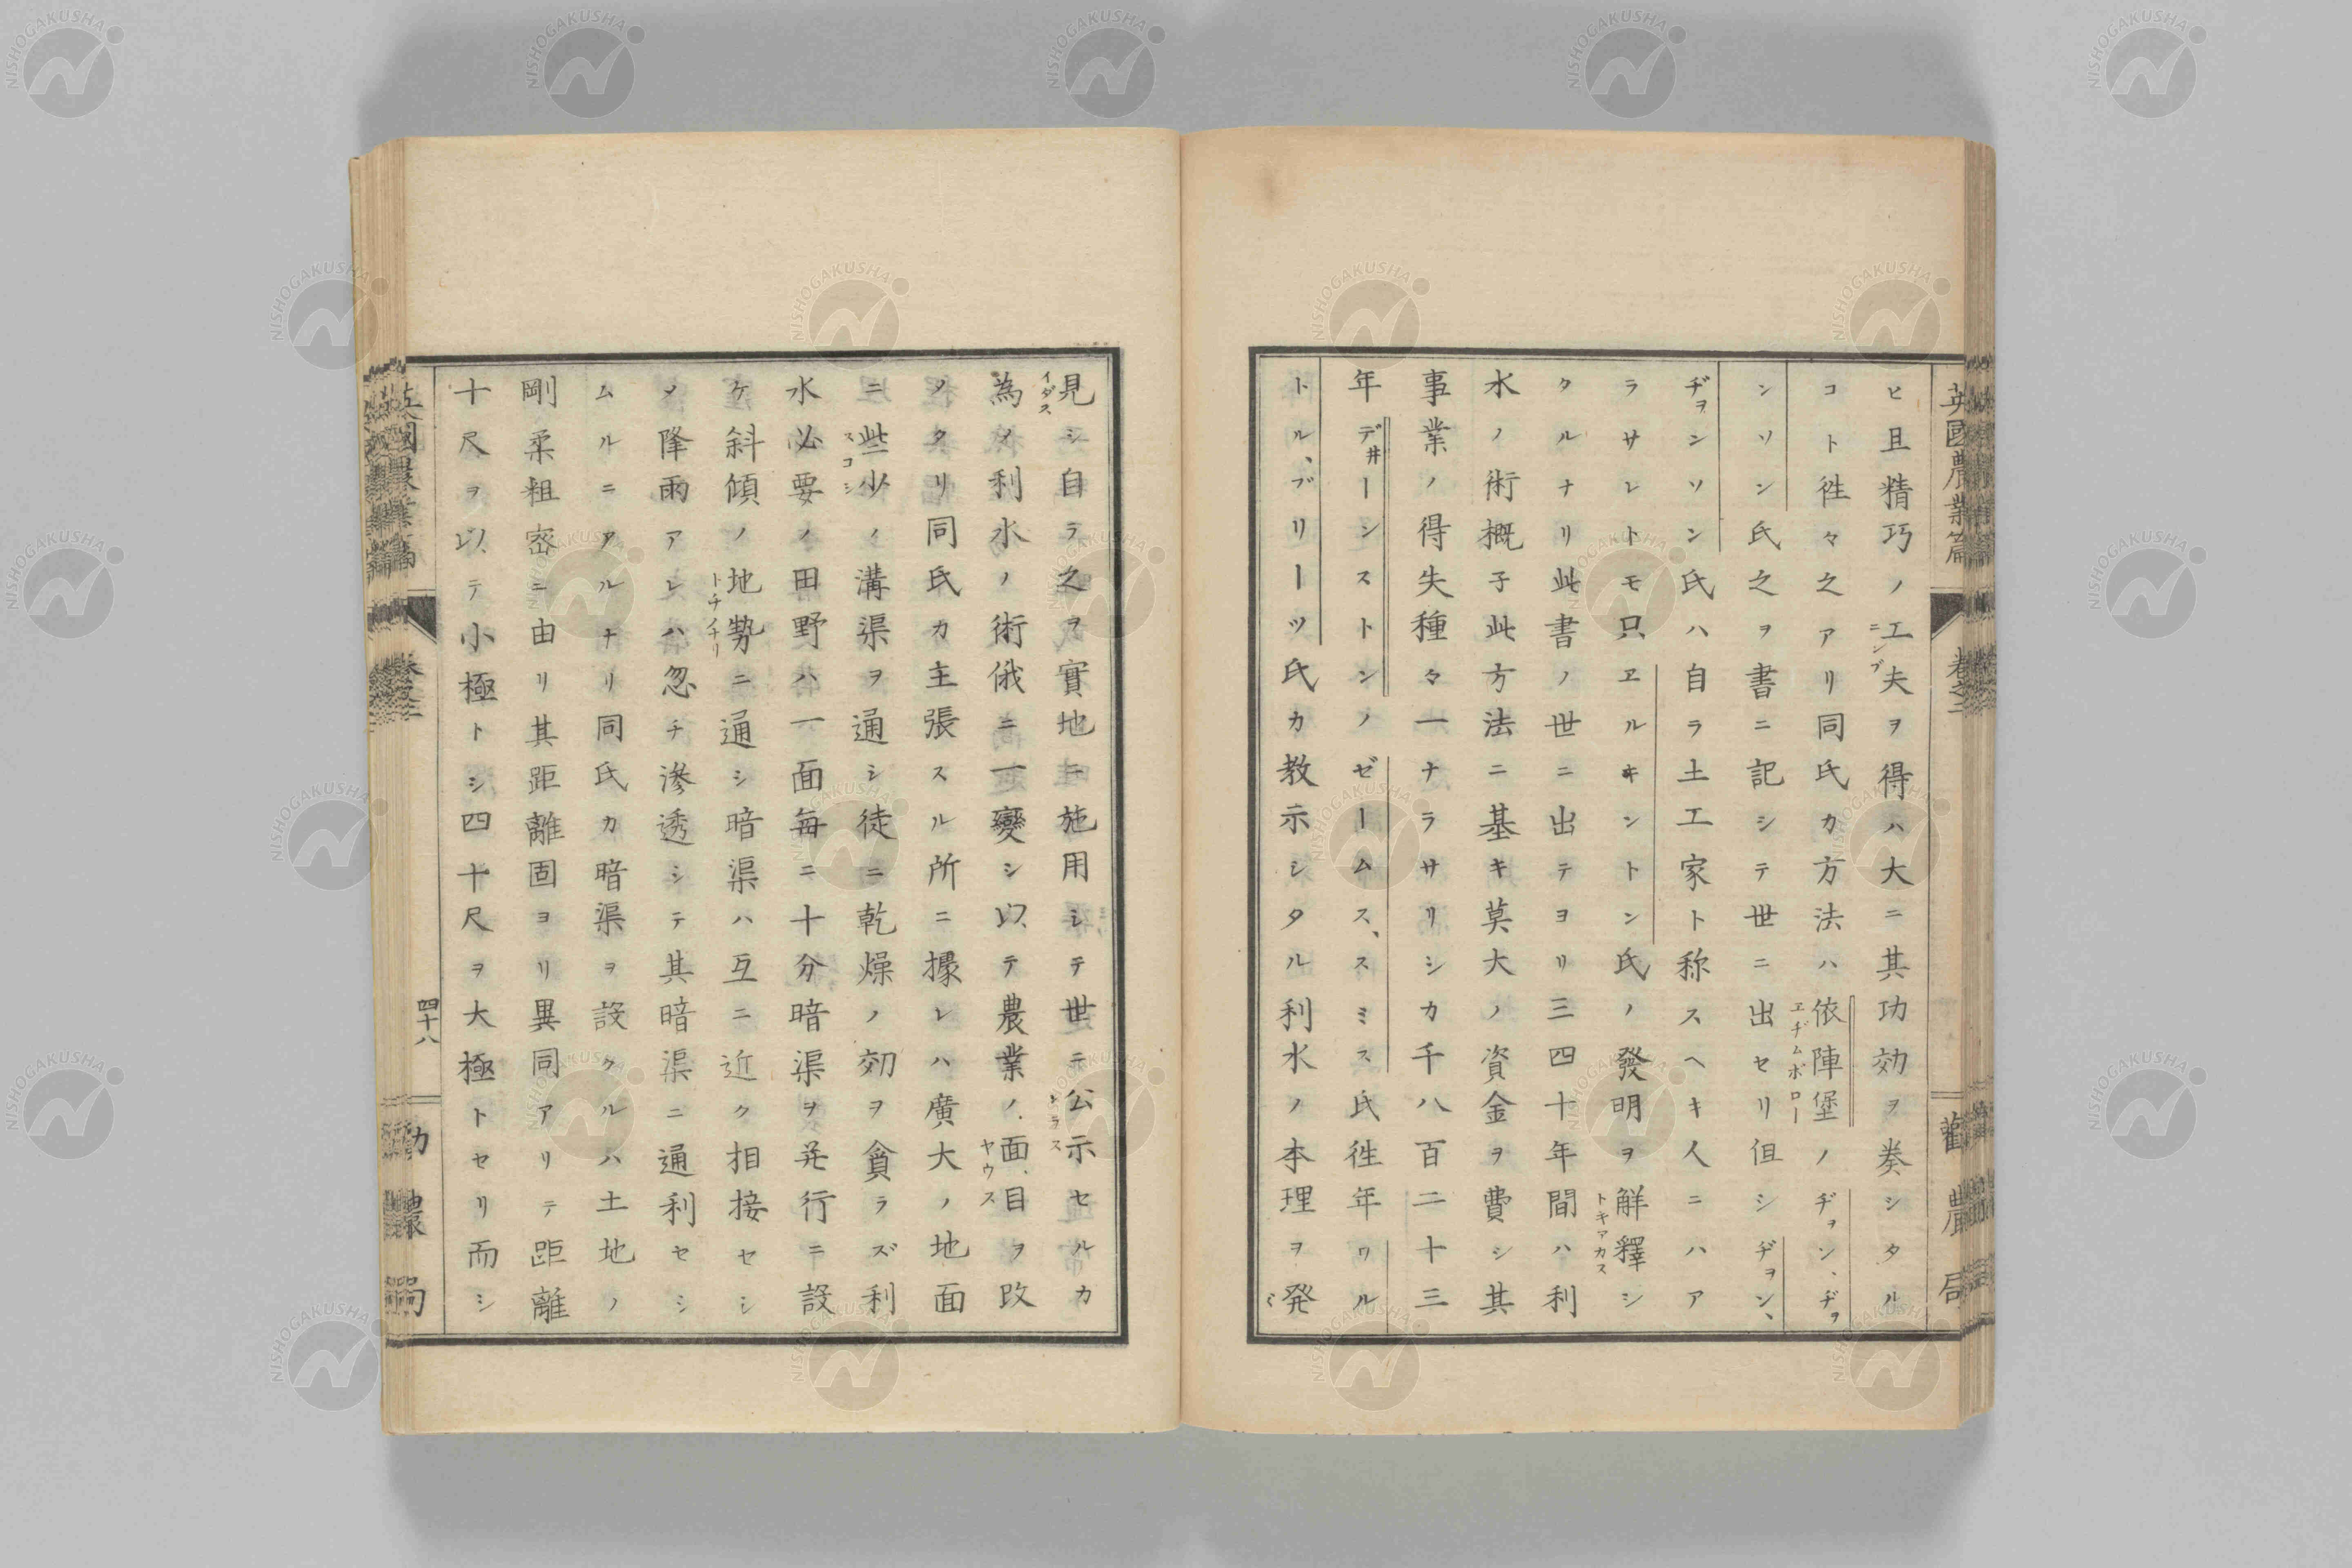 英國農業篇 卷之二 勸農局
ヒ且精巧ノ工夫ヲ得ハ大ニ其功効ヲ奏シタル
コト徃々之アリ同氏カ方法ハ依陣堡ノヂヲン、ヂヲ
ンソン氏之ヲ書ニ記シテ世ニ出セリ但シヂヲン、
ヂヲンソン氏ハ自ラ土工家ト称スヘキ人ニハア
ラサレトモ只ヱルキントン氏ノ發明ヲ解釋シ
タルナリ此書ノ世ニ出テヨリ三四十年間ハ利
水ノ術概子此方法ニ基キ莫大ノ資金ヲ費シ其
事業ノ得失種々一ナラサリシカ千八百二十三
年デ井ーンストンノゼームス、スミス氏徃年ワル
トル、ブリーツ氏カ教示シタル利水ノ本理ヲ発
見シ自ラ之ヲ實地ニ施用シテ世ニ公示セルカ
為メ利水ノ術俄ニ一變シ以テ農業ノ面目ヲ改
メタリ同氏カ主張スル所ニ據レハ廣大ノ地面
ニ些少ノ溝渠ヲ通シ徒ニ乾燥ノ効ヲ貪ラズ利
水必要ノ田野ハ一面毎ニ十分暗渠ヲ并行ニ設
ケ斜傾ノ地勢ニ通シ暗渠ハ互ニ近ク相接セシ
メ降雨アレハ忽チ滲透シテ其暗渠ニ通利セシ
ムルニアルナリ同氏カ暗渠ヲ設クルハ土地ノ
剛柔粗密ニ由リ其距離固ヨリ異同アリテ距離
十尺ヲ以テ小極トシ四十尺ヲ大極トセリ而シ
四十八